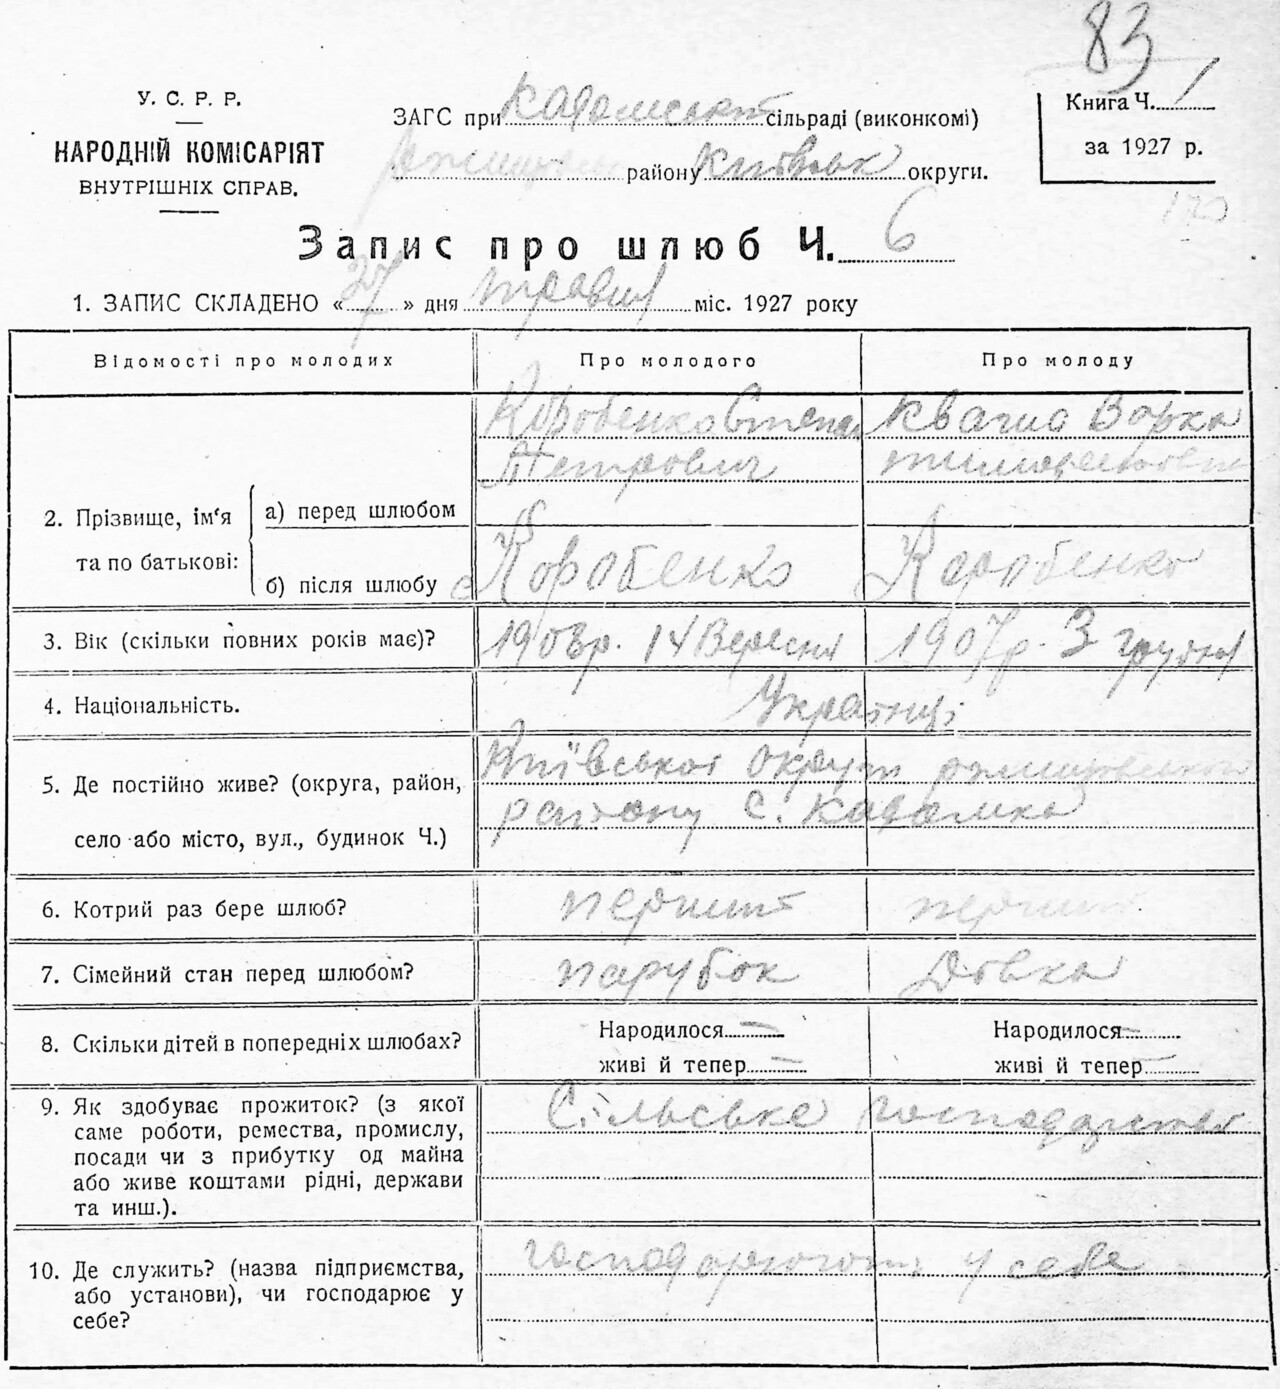 83
У. С. Р. Р.
НАРОДНІЙ КОМІСАРІЯТ
ВНУТРІШНІХ СПРАВ.
ЗАГС при Кадомській сільраді (виконкомі)
району Київськ округи.
Книга Ч. 1
за 1927 р.
Запис про шлюб Ч. 6
1. ЗАПИС СКЛАДЕНО « 27 » дня травня міс. 1927 року
Відомості про молодих Про молодого Про молоду
2. Прізвище, ім'я та по батькові:
а) перед шлюбом
Коробенко Степан Квачио Ворка
Петрович
б) після шлюбу
Коробенко Коробенко
3. Вік (скільки повних років має)? 14 Вересня 1907р. 3 грудня
4. Національність. Українці
5. Де постійно живе? (округа, район, Київської округи
село або місто, вул., будинок Ч.) району с. Кадомка
6. Котрий раз бере шлюб? перший перший
7. Сімейний стан перед шлюбом? парубок Дівка
8. Скільки дітей в попередніх шлюбах? Народилося — Народилося —
живі й тепер — живі й тепер —
9. Як здобуває прожиток? (з якої Сільське господарство
саме роботи, ремества, промислу,
посади чи з прибутку од майна
або живе коштами рідні, держави
та инш.).
10. Де служить? (назва підприємства, у себе
або установи), чи господарює у
себе?